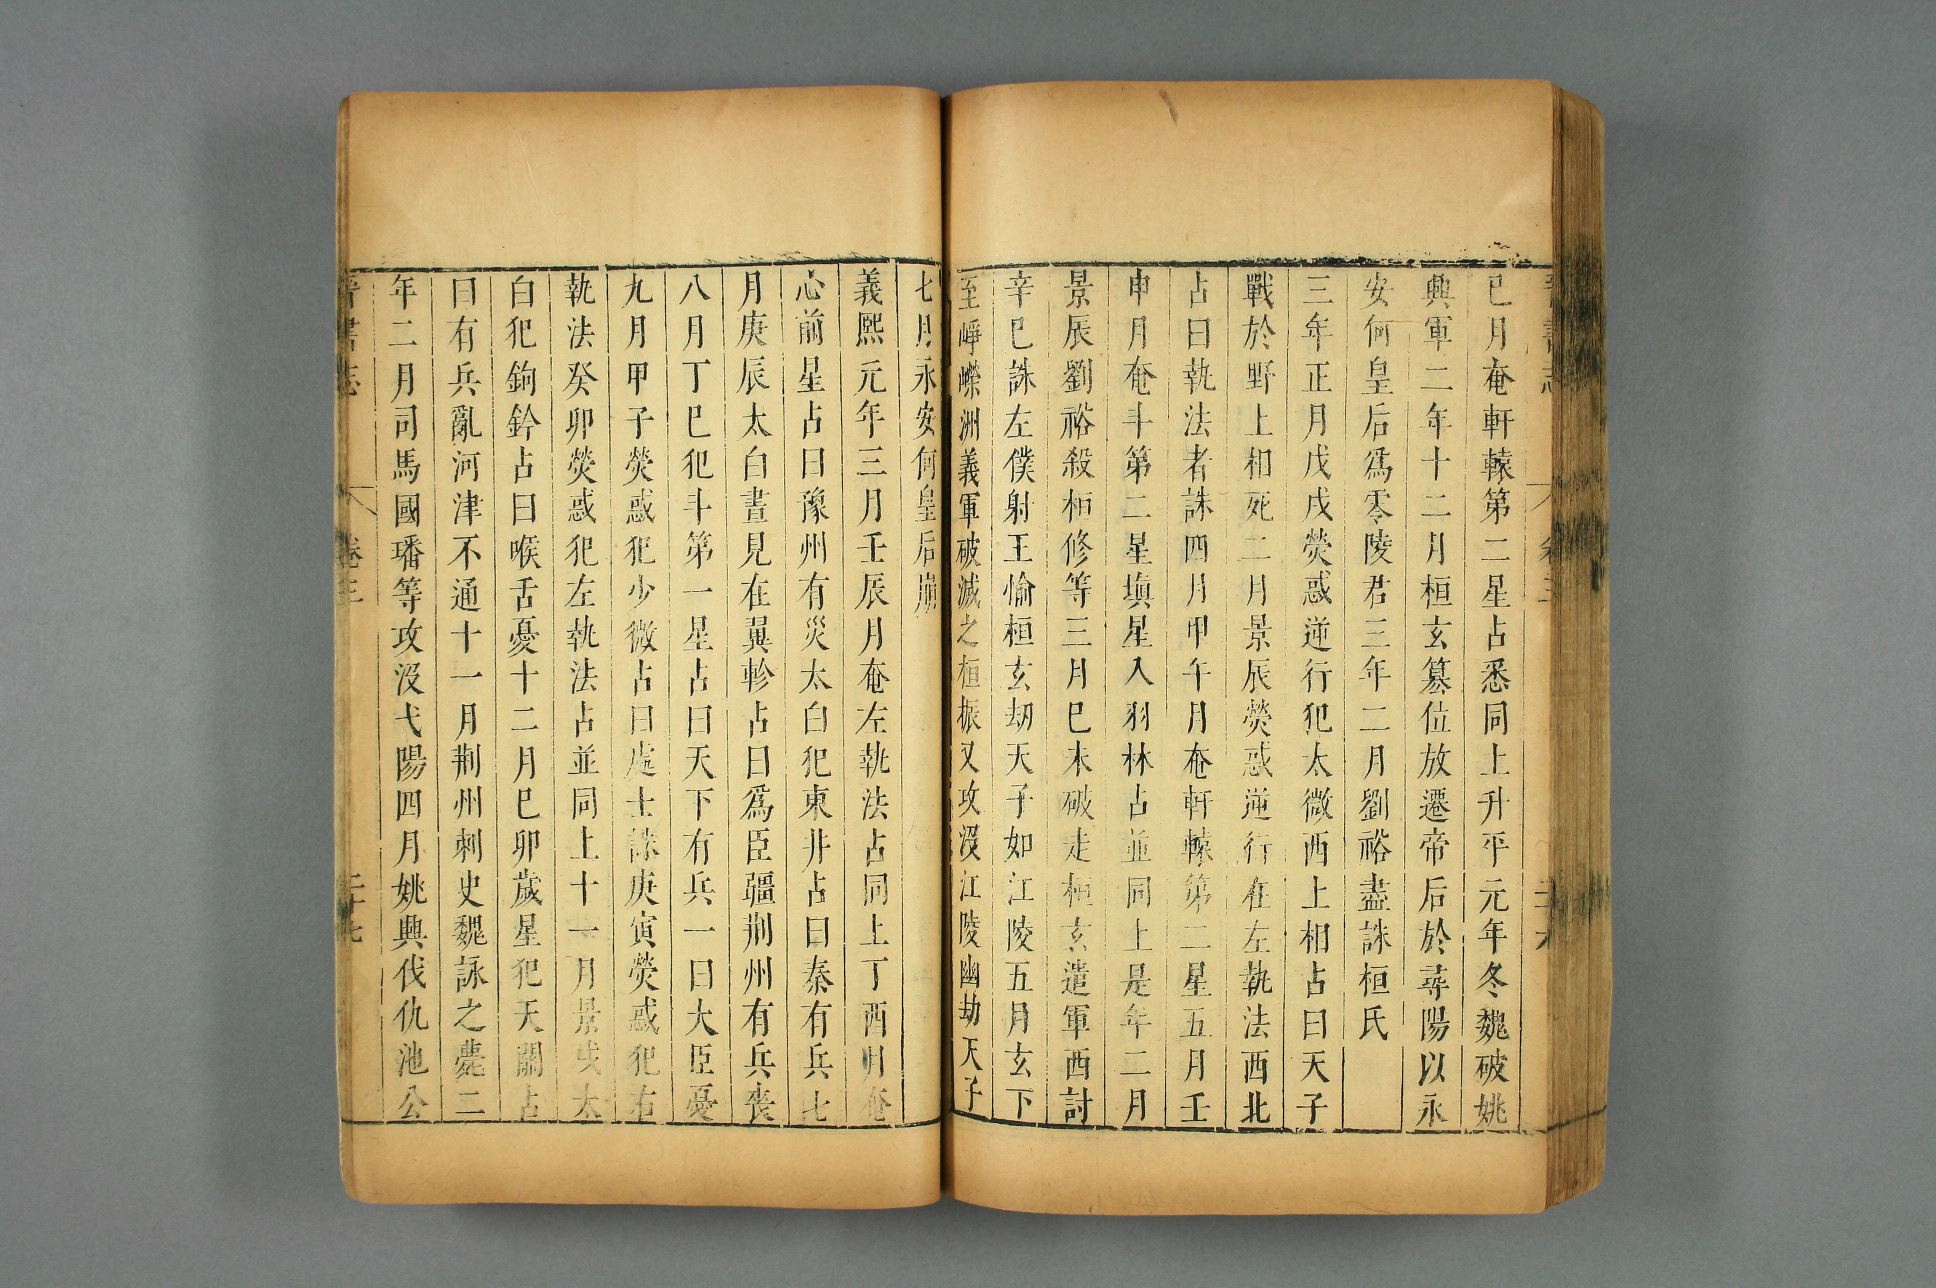 巳月奄軒轅第二星占悉同上升平元年冬魏破姚
興軍二年十二月桓玄篡位放遷帝后於尋陽以永
安何皇后爲零陵君三年二月劉裕盡誅桓氏
三年正月戊戌熒惑逆行犯太微西上相占曰天子
戰於野上相死二月景辰熒惑逆行在左執法西北
占曰執法者誅四月甲午月奄軒轅第二星五月壬
申月奄斗第二星填星入羽林占並同上是年二月
景辰劉裕殺桓修等三月巳未破走桓玄遣軍西討
辛巳誅左僕射王愉桓玄刼天子如江陵五月玄下
至崢嶸洲義軍破滅之桓振又攻沒江陵幽劫天子
七月永安何皇后崩
義熙元年三月壬辰月奄左執法占同上丁酉月奄
心前星占曰豫州有災太白犯東井占曰秦有兵七
月庚辰太白晝見在翼軫占曰爲臣疆荆州有兵喪
八月丁巳犯斗第一星占曰天下有兵一曰大臣憂
九月甲子熒惑犯少微占曰處士誅庚寅熒惑犯右
執法癸卯熒惑犯左執法占並同上十一月景戌太
白犯鉤鈐占曰喉舌憂十二月巳卯歲星犯天關占
曰有兵亂河津不通十一月荆州刺史魏詠之薨二
年二月司馬國璠等攻沒弋陽四月姚興伐仇池公
晉書志 卷三 二十七